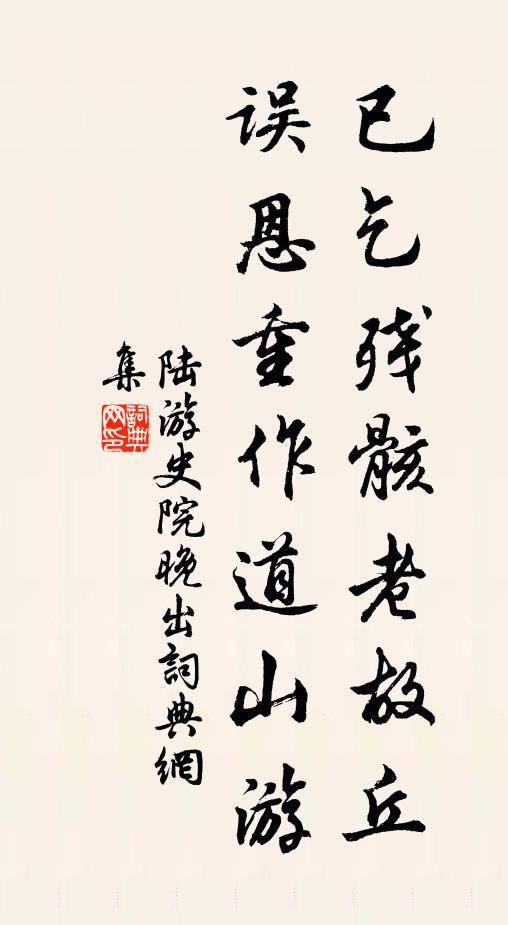 已乞残骸老故丘
误恩重作道山游
陆游史院晚出詞典網
集
詞典网印